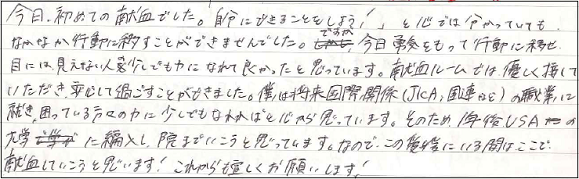 今日、初めての献血でした。「自分にできることをしよう!」と心では分かっていても、
なかなか行動に移すことができませんでした。ですが 今日勇気をもって行動に移せ、
目には見えない人を少しでも力になれて良かったと思っています。献血ルームでは優しく接して
いただき、安心して過ごすことができました。僕は将来国際関係(JICA、国連など)の職業に
就き、困っている方々の力に少しでもなれればと心から思っています。そのため1年後USAの
大学に編入し、院までいこうと思っています。なので、この に いる間はここで
献血していこうと思います! これからも宜しくお願いします!